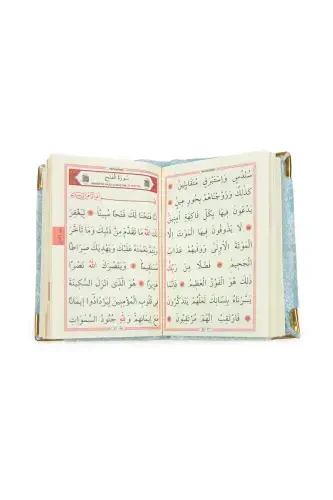 سُنْدُسٍ وَاِسْتَبْرَقٍ مُتَقَابِلٖينَ
كَذٰلِكَ وَزَوَّجْنَاهُمْ بِحُورٍ عٖينٍ
يَدْعُونَ فٖيهَا بِكُلِّ فَاكِهَةٍ اٰمِنٖينَ
لَا يَذُوقُونَ فٖيهَا الْمَوْتَ اِلَّا
الْمَوْتَةَ الْاُولٰى وَوَقٰيهُمْ عَذَابَ
الْجَحٖيمِ فَضْلًا مِنْ رَبِّكَ
ذٰلِكَ هُوَ الْفَوْزُ الْعَظٖيمُ فَاِنَّمَا
يَسَّرْنَاهُ بِلِسَانِكَ لَعَلَّهُمْ يَتَذَكَّرُونَ
فَارْتَقِبْ اِنَّهُمْ مُرْتَقِبُونَ
سُورَةُ الْفَتْحِ
اِنَّا فَتَحْنَا لَكَ فَتْحًا مُبٖينًا لِيَغْفِرَ
لَكَ اللّٰهُ مَا تَقَدَّمَ مِنْ ذَنْبِكَ وَمَا تَاَخَّرَ
وَيُتِمَّ نِعْمَتَهُ عَلَيْكَ وَيَهْدِيَكَ صِرَاطًا
مُسْتَقٖيمًا وَيَنْصُرَكَ اللّٰهُ نَصْرًا
عَزٖيزًا هُوَ الَّذٖى اَنْزَلَ السَّكٖينَةَ
فٖى قُلُوبِ الْمُؤْمِنٖينَ لِيَزْدَادُوا اٖيمَانًا
مَعَ اٖيمَانِهِمْ وَلِلّٰهِ جُنُودُ السَّمٰوَاتِ